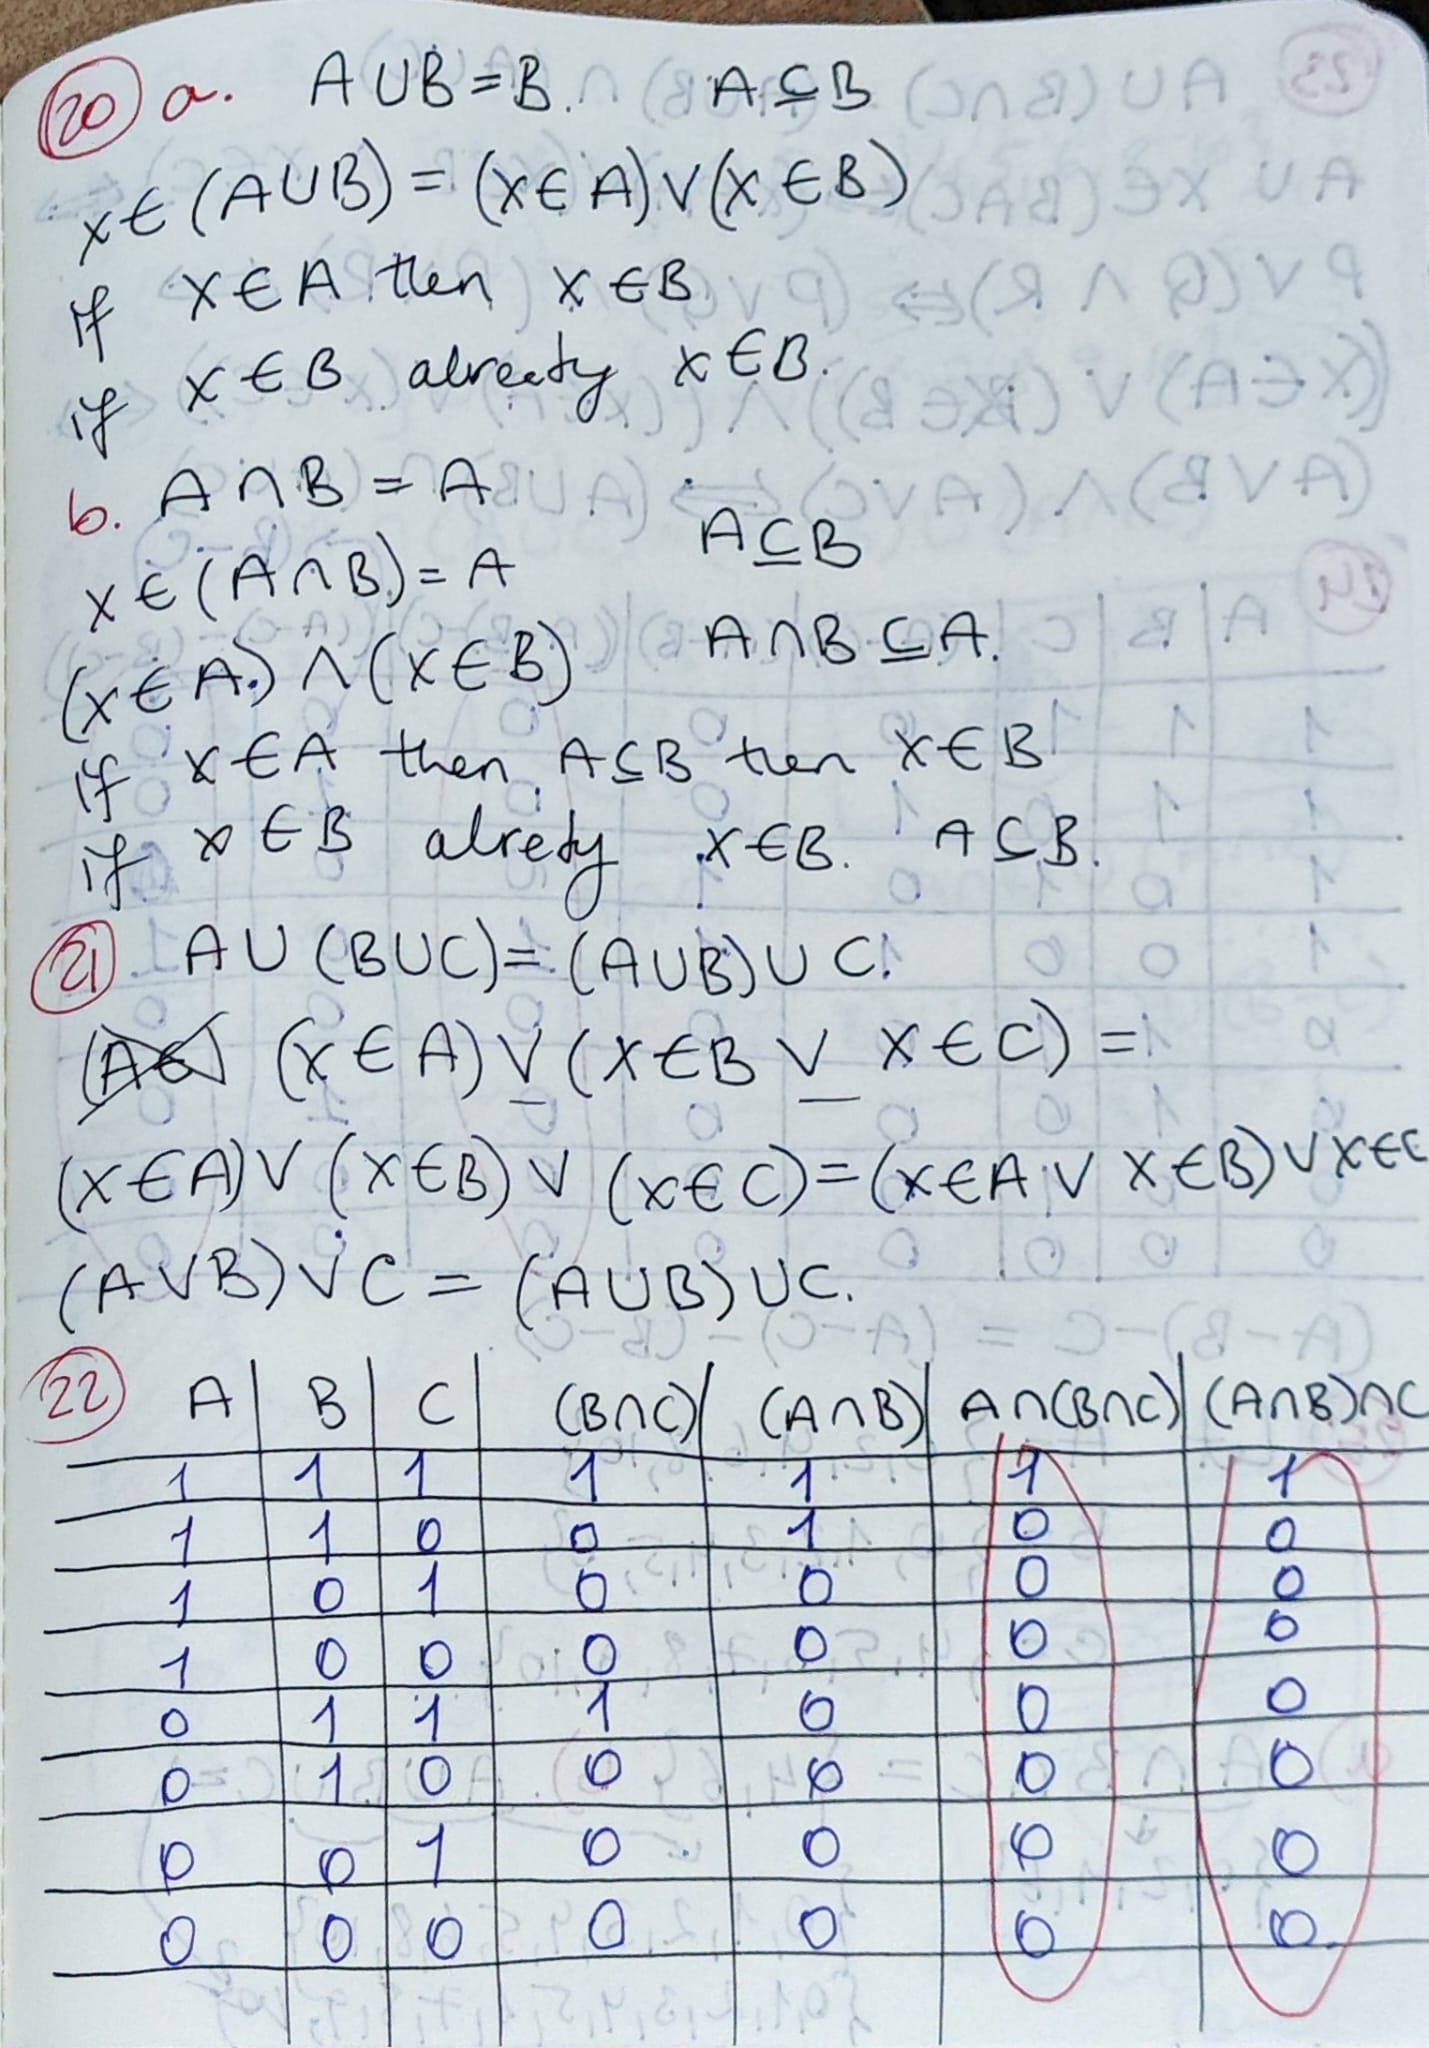 20 a. A∪B=B. A⊆B
x∈(A∪B)=(x∈A)∨(x∈B)
If x∈A then x∈B
if x∈B already x∈B.
b. A∩B=A
A⊆B
x∈(A∩B)=A
A∩B⊆A.
(x∈A)∧(x∈B)
if x∈A then A⊆B then x∈B
if x∈B alredy x∈B. A⊆B.
21 A∪(B∪C)=(A∪B)∪C.
(x∈A)∨(x∈B∨x∈C)=
(x∈A)∨(x∈B)∨(x∈C)=(x∈A∨x∈B)∨x∈C
(A∨B)∨C=(A∪B)∪C.
22 A B C (B∩C) (A∩B) A∩(B∩C) (A∩B)∩C
1 1 1 1 1 1 1
1 1 0 0 1 0 0
1 0 1 0 0 0 0
1 0 0 0 0 0 0
0 1 1 1 0 0 0
0 1 0 0 0 0 0
0 0 1 0 0 0 0
0 0 0 0 0 0 0